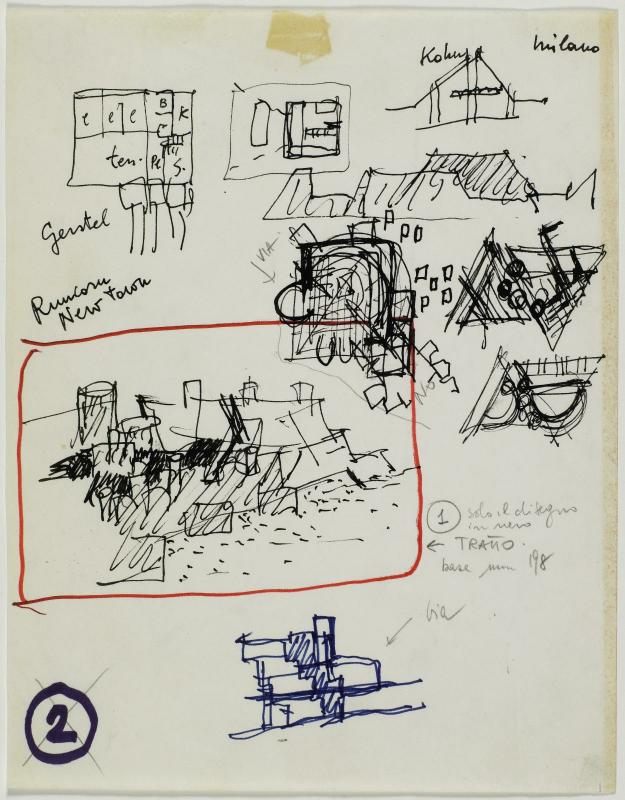 Kohn
Milano
B
e e e K
ten. Pr S.
Gerstel
VIA
Runcorn
New Town
NO
1 solo il disegno
in nero
← TRATTO.
base mm 198
via
2